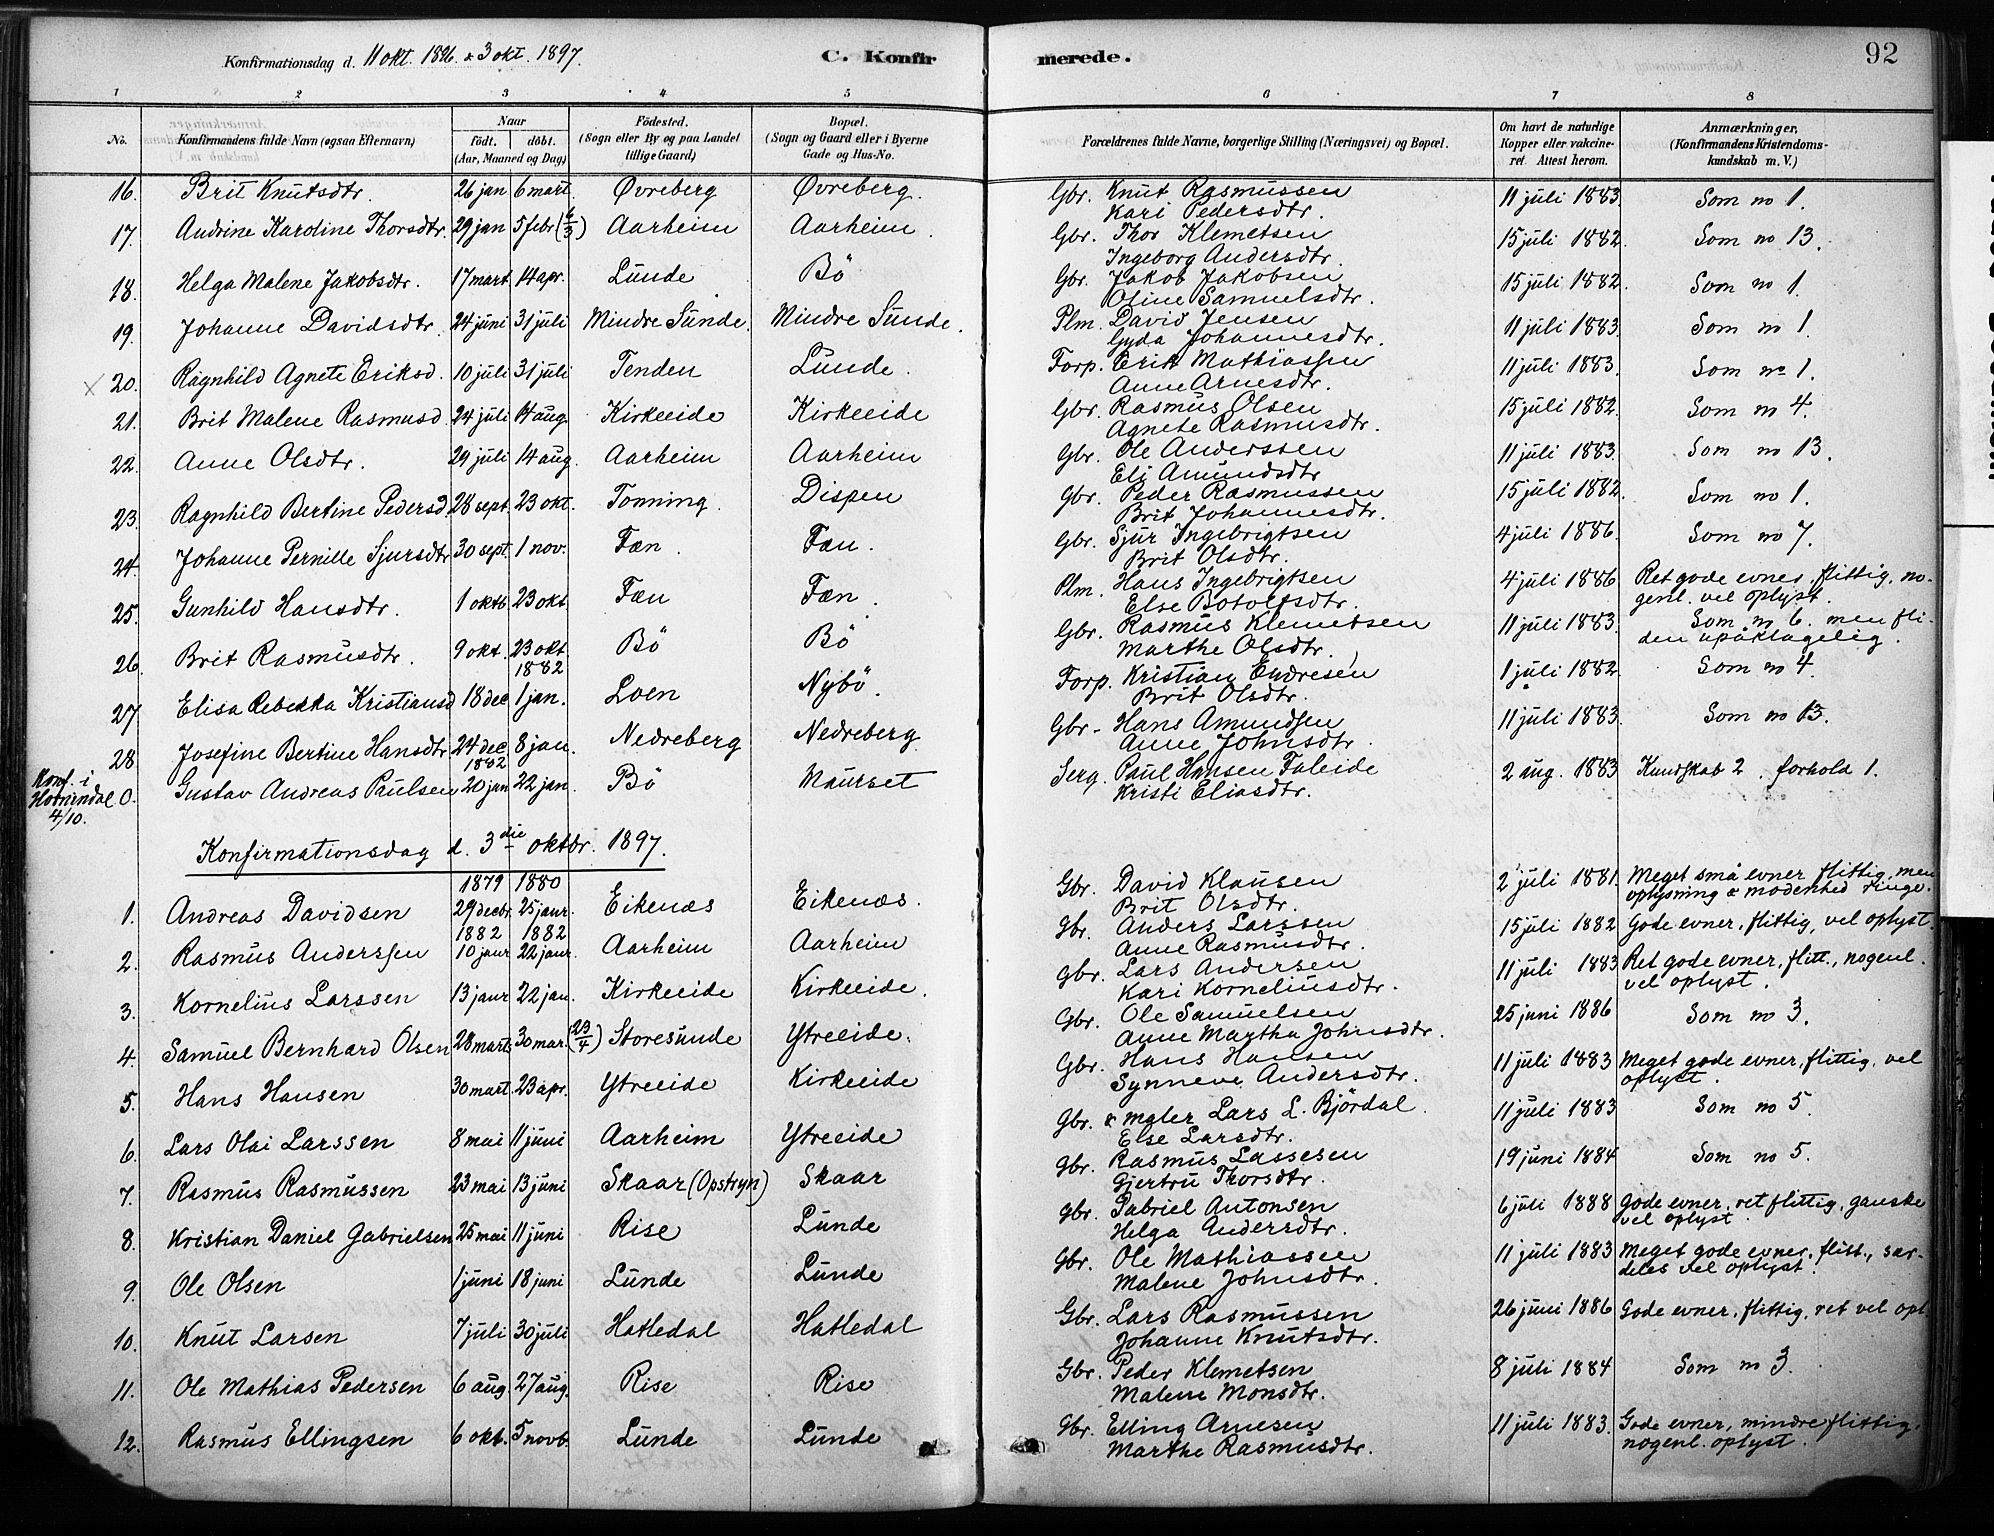 Konfirmationsdag d. 11 okt. 1896 & 3 okt. 1897.
C. Konfirmerede.
92
1 2 3 4 5 6 7 8
No. Konfirmandens fulde Navn (ogsaa Efternavn) Naar født. døbt. (Aar, Maaned og Dag) Fødested. (Sogn eller By og paa Landet tillige Gaard) Bopæl. (Sogn og Gaard eller i Byerne Gade og Hus-No. Forældrenes fulde Navne, borgerlige Stilling (Næringsvei) og Bopæl. Om havt de naturlige Kopper eller vakcineret. Attest herom. Anmærkninger, (Konfirmandens Kristendomskundskab m. V.)
16. Brit Knutsdtr. 26 jan 6 mart Øvreberg Øvreberg. Gbr. Knut Rasmussen 11 juli 1883. Som no 1.
Kari Pedersdtr.
17. Andrine Karoline Thorsdtr. 29 jan 5 febr (6/3) Aarheim Aarheim. Gbr. Thor Klemetsen 15 juli 1882. Som no 13.
Ingeborg Andersdtr.
18. Helga Malene Jakobsdtr. 17 mart 14 apr. Lunde Bö Gbr. Jakob Jakobsen 15 juli 1882. Som no 1.
Oline Samuelsdtr.
19. Johanne Davidsdtr. 24 juni 31 juli Mindre Sunde. Mindre Sunde. Plm. David Jensen 11 juli 1883. Som no 1.
Gyda Johannesdtr.
x 20. Ragnhild Agnete Eriksd. 10 juli 31 juli Tenden Lunde. Forp. Erik Mathiassen 11 juli 1883. Som no 1.
Anne Arnesdtr.
21. Brit Malene Rasmusd. 24 juli 14 aug. Kirkeeide Kirkeeide Gbr. Rasmus Olsen 15 juli 1882. Som no 4.
Agnete Rasmusdtr.
22. Anne Olsdtr. 29 juli 14 aug. Aarheim Aarheim Gbr. Ole Anderssen 11 juli 1883. Som no 13.
Eli Amundsdtr
23. Ragnhild Bertine Pedersd. 28 sept. 23 okt. Tonning. Dispen Gbr. Peder Rasmussen 15 juli 1882. Som no 1.
Brit Johannesdtr.
24. Johanne Pernille Sjursdtr 30 sept. 1 nov. Fæn. Fæn. Gbr. Sjur Ingebrigtsen 4 juli 1886. Som no 7.
Brit Olsdtr.
25. Gunhild Hansdtr. 1 oktb 23 okt. Fæn Fæn. Plm. Hans Ingebrigtsen 4 juli 1886 Ret gode evner, flittig, no-
Else Botolfsdtr. genl. vel oplyst.
26. Brit Rasmusdtr. 9 okt. 23 okt. Bö Bö Gbr. Rasmus Klemetsen 11 juli 1883. Som no 6. men fli-
Marthe Olsdtr. den upåklagelig.
1882
27 Elisa Rebekka Kristiansd 18 dec 1 jan. Loen Nybö. Forp. Kristian Endresen 1 juli 1882. Som no 4.
Brit Olsdtr.
28 Josefine Bertine Hansdtr 24 dec 8 jan. Nedreberg Nedreberg. Gbr. Hans Amundsen 11 juli 1883. Som no 13.
Anne Johnsdtr.
1882
Konf. i Hornindal 4/10. 0. Gustav Andreas Paulsen 20 jan 22 jan. Bö Maurset Serg. Paul Hansen Faleide 2 aug. 1883 Kundskab 2. forhold 1.
Kristi Eliasdtr.
Konfirmationsdag d. 3die oktbr. 1897.
1879 1880
1. Andreas Davidsen 29 decbr. 25 janr. Eikenæs Eikenæs. Gbr. David Klausen 2 juli 1881. Meget små evner, flittig, men
Brit Olsdtr. oplysning & modenhed ringe.
1882 1882
2. Rasmus Anderssen 10 janr 22 janr. Aarheim Aarheim Gbr. Anders Larssen 15 juli 1882 Gode evner, flittig, vel oplyst.
Anne Rasmusdtr.
3. Kornelius Larssen 13 janr 22 jan. Kirkeeide Kirkeeide. Gbr. Lars Andersen 11 juli 1883 Ret gode evner, flitt., nogenl.
Kari Korneliusdtr. vel oplyst.
4. Samuel Bernhard Olsen 28 marts 30 mar. (23/4) Storesunde Ytreeide. Gbr. Ole Samuelsen 25 juni 1886 Som no 3.
Anne Martha Johnsdtr.
5. Hans Hansen 30 mart 23 apr. Ytreeide Kirkeeide Gbr. Hans Hansen 11 juli 1883 Meget gode evner, flittig, vel
Synneve Andersdtr. oplyst.
6. Lars Olai Larssen 8 mai 11 juni Aarheim Ytreeide Gbr. & maler Lars L. Björdal. 11 juli 1883 Som no 5.
Else Larsdtr.
7. Rasmus Rasmussen 23 mai 13 juni Skaar (Opstryn) Skaar Gbr. Rasmus Lassesen 19 juni 1884 Som no 5.
Gjertru Thorsdtr.
8. Kristian Daniel Gabrielsen 25 mai 11 juni Rise Lunde Gbr. Gabriel Antonsen 6 juli 1888 Gode evner, ret flittig, ganske
Helga Andersdtr. vel oplyst.
9. Ole Olsen 1 juni 18 juni Lunde Lunde Gbr. Ole Mathiassen 11 juli 1883 Meget gode evner, flitt., sær-
Malene Johnsdtr. deles vel oplyst.
10. Knut Larsen 7 juli 30 juli Hatledal Hatledal Gbr. Lars Rasmussen 26 juni 1886 Gode evner, flittig, ret vel opl
Johanne Knutsdtr.
11. Ole Mathias Pedersen 6 aug. 27 aug. Rise Rise Gbr. Peder Klemetsen 8 juli 1884 Som no 3.
Malene Monsdtr.
12. Rasmus Ellingsen 6 okt. 5 novb. Lunde Lunde Gbr. Elling Arnesen 11 juli 1883. Gode evner, mindre flittig,
Marthe Rasmusdtr. nogenl. oplyst.